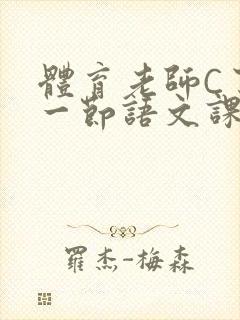 體育老師C
一節語文課
羅杰-梅森